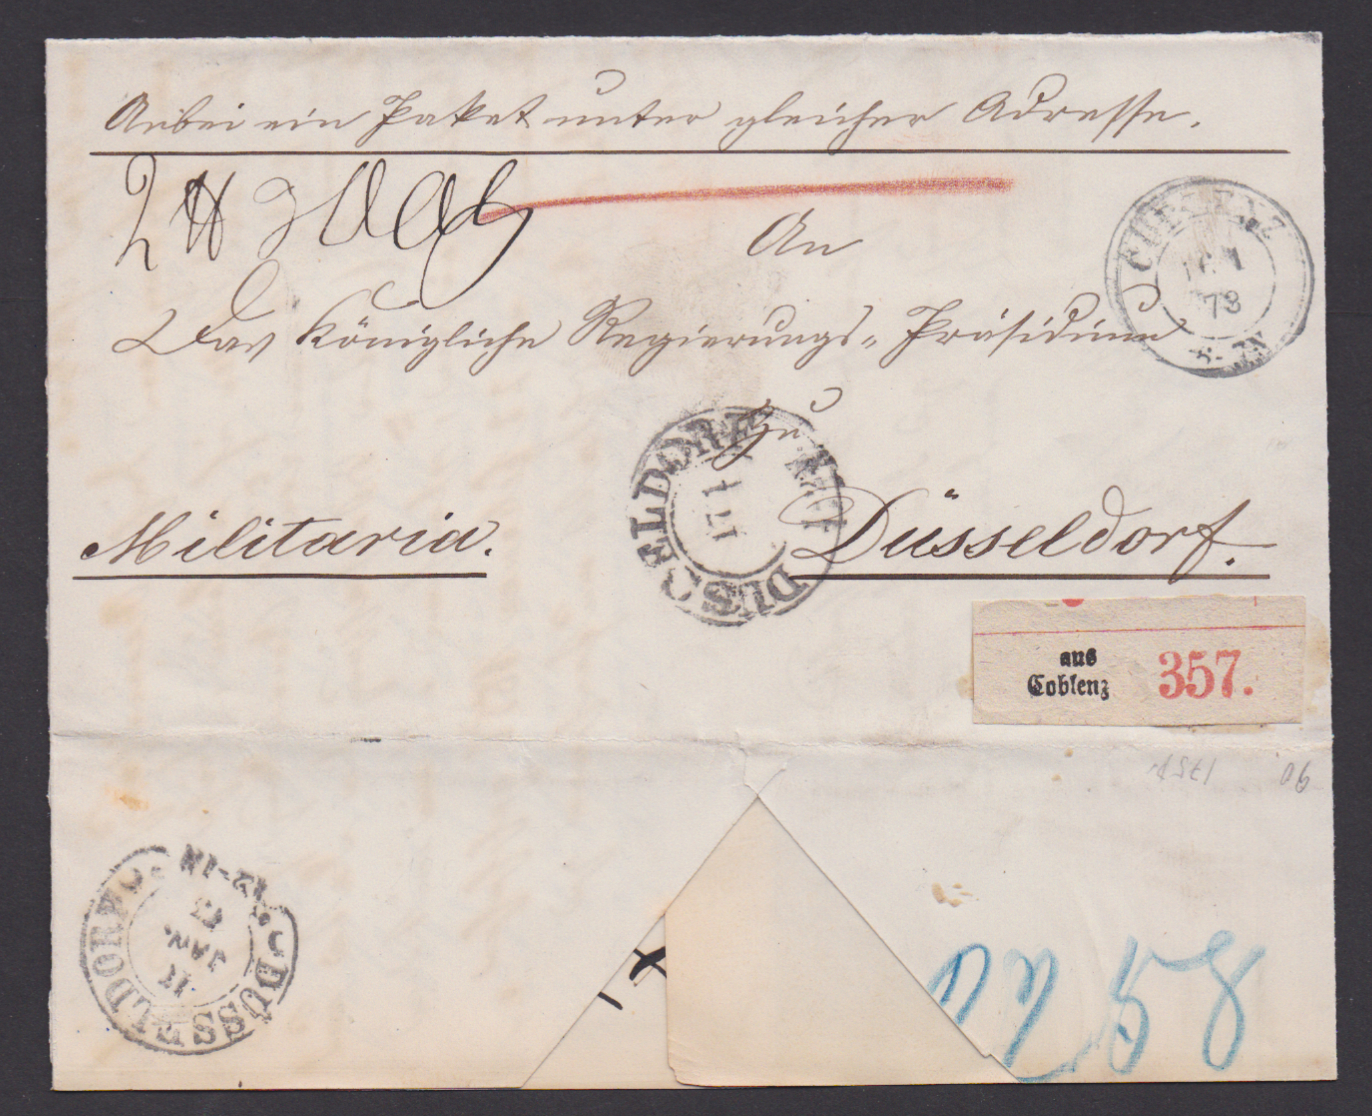 Anbei ein Paket unter gleicher Adresse.
An
Das Königliche Regierungs-Präsidium
zu
Militaria.
Düsseldorf.
COBLENZ
DÜSSELDORF
17 1
aus
Coblenz
357.
175
90
DÜSSELDORF
17
JAN.
73
12-1N